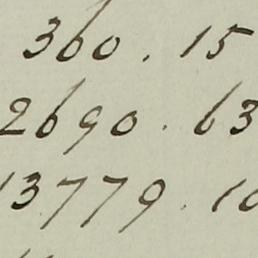 360.15
2690.63
13779.10